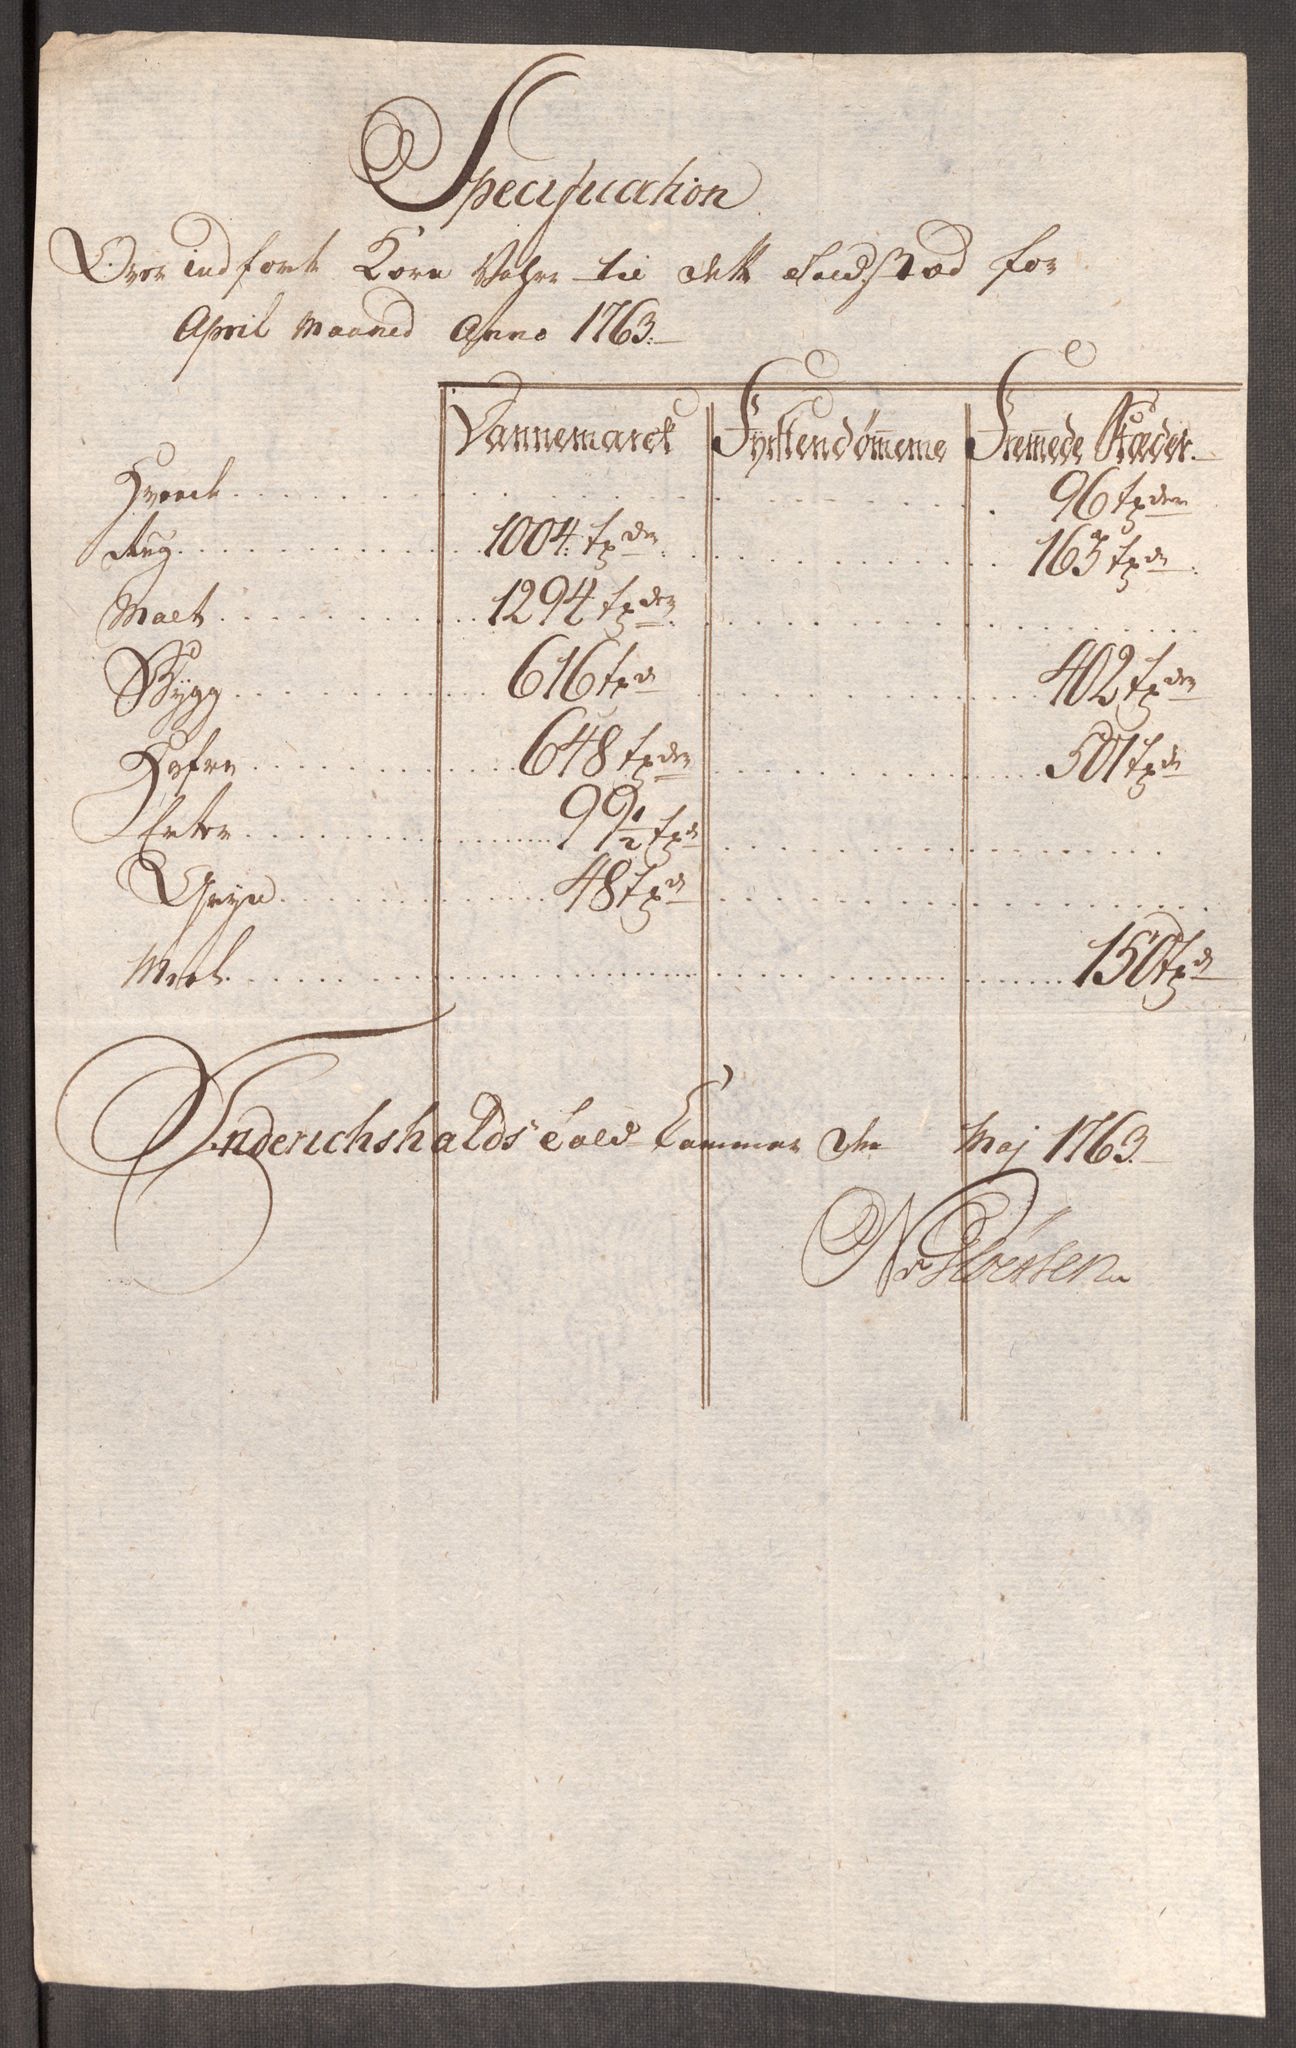 Specification
Over indførte Korn Vahre til dette Toldstæd for
April Maaned Anno 1763.
Dannemarck Fyrstendømmeme Fremede Stæder.
Hvede . . . 96 tr: der
Rug . . . 1004. tr: der . . . 163 tr: d
Malt . . . 1294 tr: der . . .
Bygg . . . 616 tr: d . . . 402 tr: der
Hafre . . . 648 tr: der . . . 501 tr: d
Erter . . . 99 1/2 tr: d . . .
Gryn . . . 48 tr: d . . .
Meel . . . 150 tr: d
Friderichshalds Told Kammer den Maj 1763.